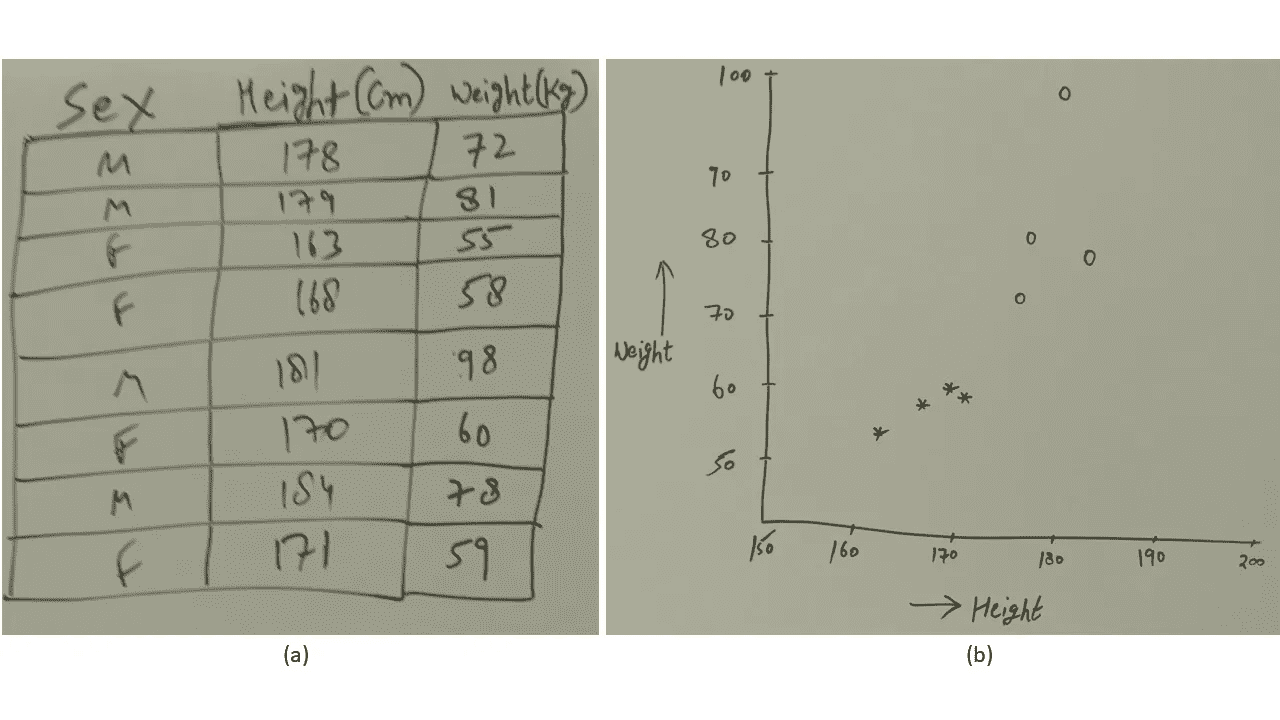 Sex Height(Cm) Weight(Kg)
M 178 72
M 179 81
F 163 55
F 168 58
M 181 98
F 170 60
M 184 78
F 171 59
(a)
100
90
80
70
60
50
Weight
150 160 170 180 190 200
Height
(b)